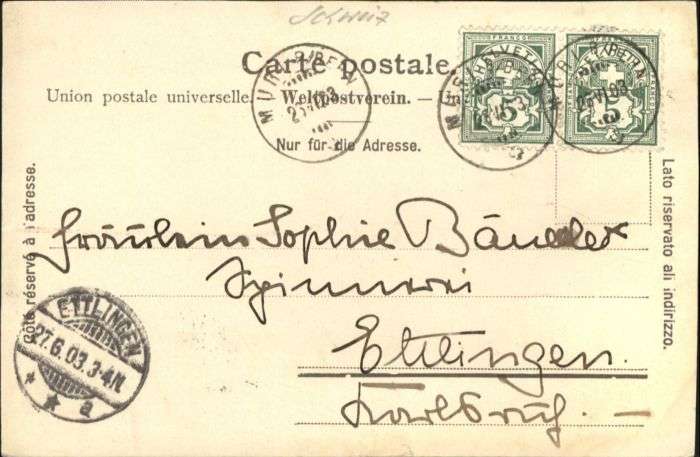 Schweiz
Carte postale.
Union postale universelle. — Weltpostverein. — Un
Nur für die Adresse.
Côté réservé à l'adresse.
Lato riservato ali indirizzo.
FRANCO
HELVETIA
5
5
MURI B/BERN
ETTLINGEN
27.6.03.3-4N.
a
Fräulein Sophie
Spinnerei
Ettlingen.
Karlsruh. —